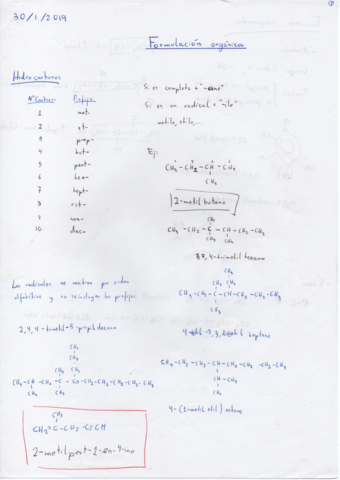 30/1/2019
Formulación orgánica
Hidrocarburos
Nº Carbonos Prefijo
1 met-
2 et-
3 prop-
4 but-
5 pent-
6 hex-
7 hept-
8 oct-
9 non-
10 dec-
Si es completo + "-ano"
Si es un radical + "-ilo"
metilo, etilo,...
Ej:
CH₃-CH₂-CH-CH₃
CH₃
2-metil butano
CH₃
CH₃-CH₂-C-CH-CH₂-CH₃
CH₃ CH₃
3,3,4-trimetil hexano
Los radicales se nombran por orden
alfabético y no se incluyen los prefijos
2,4,4-trimetil-5-propil decano
CH₃-CH-CH₂-C-CH-CH₂-CH₂-CH₂-CH₂-CH₃
CH₃-CH₂-C-CH-CH₂-CH₂-CH₃
heptano
CH₃-CH₂-CH₂-CH-CH₂-CH₂-CH₂-CH₃
CH-CH₃
CH₃
4-(1-metil etil) octano
CH₃
CH₂=C-CH₂-C≡CH
2-metilpent-1-en-4-ino